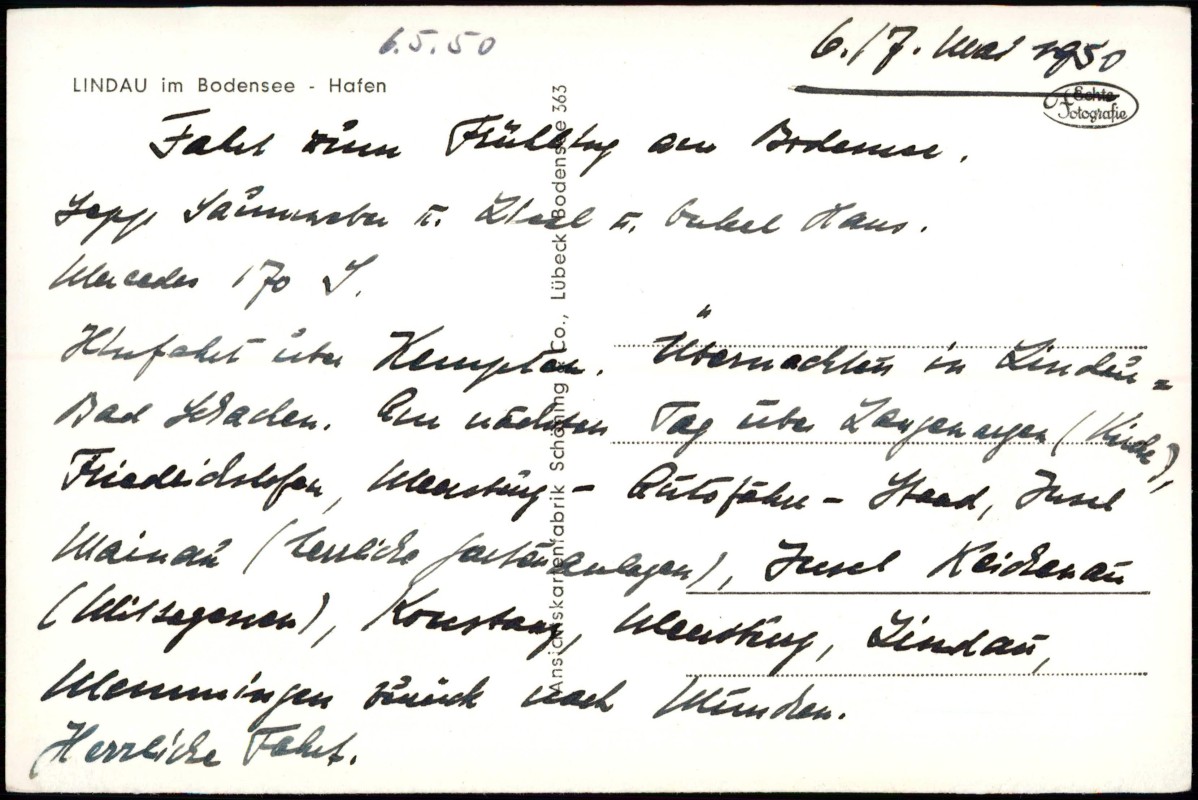 6.5.50
6./7. Mai 1950
LINDAU im Bodensee - Hafen
Echte
Fotografie
Fahrt zum Frühling am Bodensee.
Sepp u. Liesl u. Onkel Hans.
Mercedes 170 S.
Hinfahrt über Kempten. Übernachten in Lindau-
Bad Schachen. Am nächsten Tag über Langenargen (Kirche),
Friedrichshafen, Meersburg - Autofähre - Staad, Insel
Mainau (herrliche Gartenanlagen), Insel Reichenau
(Mittagessen), Konstanz, Meersburg, Lindau,
Memmingen zurück nach München.
Herrliche Fahrt.
Ansichtskartenfabrik Schöning & Co., Lübeck Bodensee 363